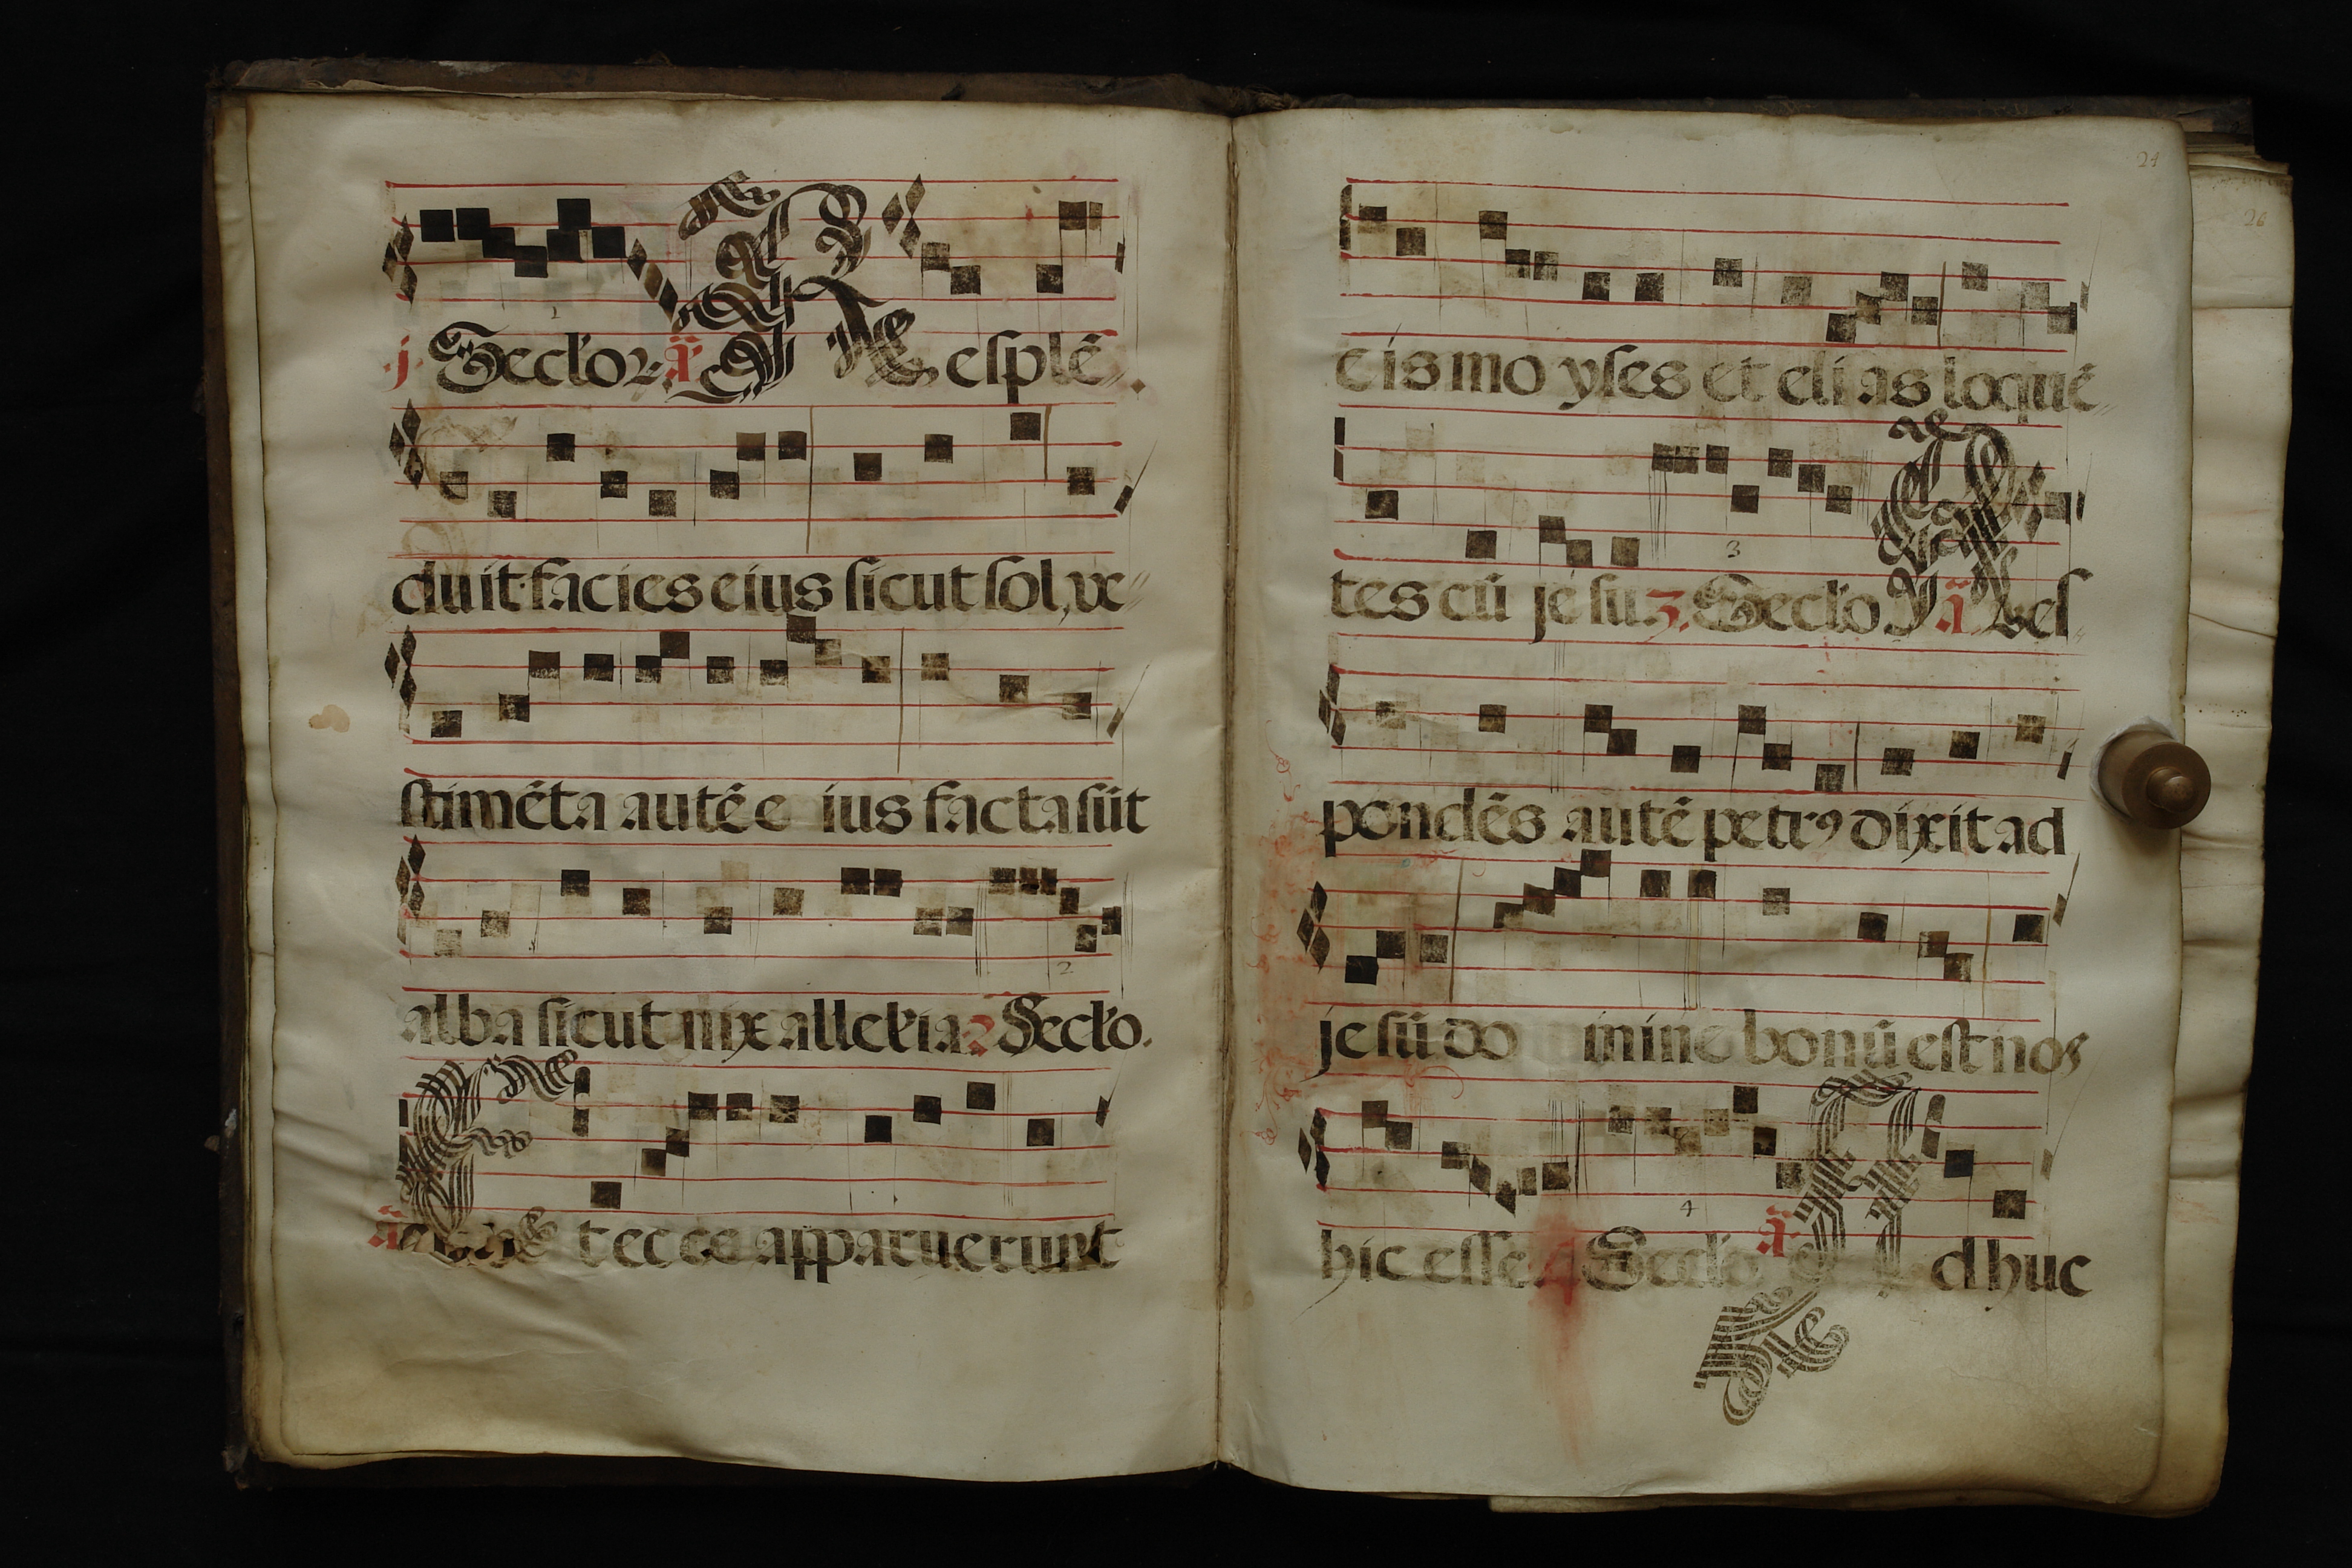 1
j. Seclor. ā Resplē
duit. facies eius sicut sol, ve
stimēta autē eius facta sūt
2
alba sicut nix alleluia. 2 Seclo.
ā Et ecce apparuerunt
24
26
eis moyses et elias loquē
3
tes cū jesu. 3. Seclo ā Res
pondēs autē petrꝰ dixit ad
jesū domine bonū est nos
4
hic esse. 4 Seclo ā Adhuc